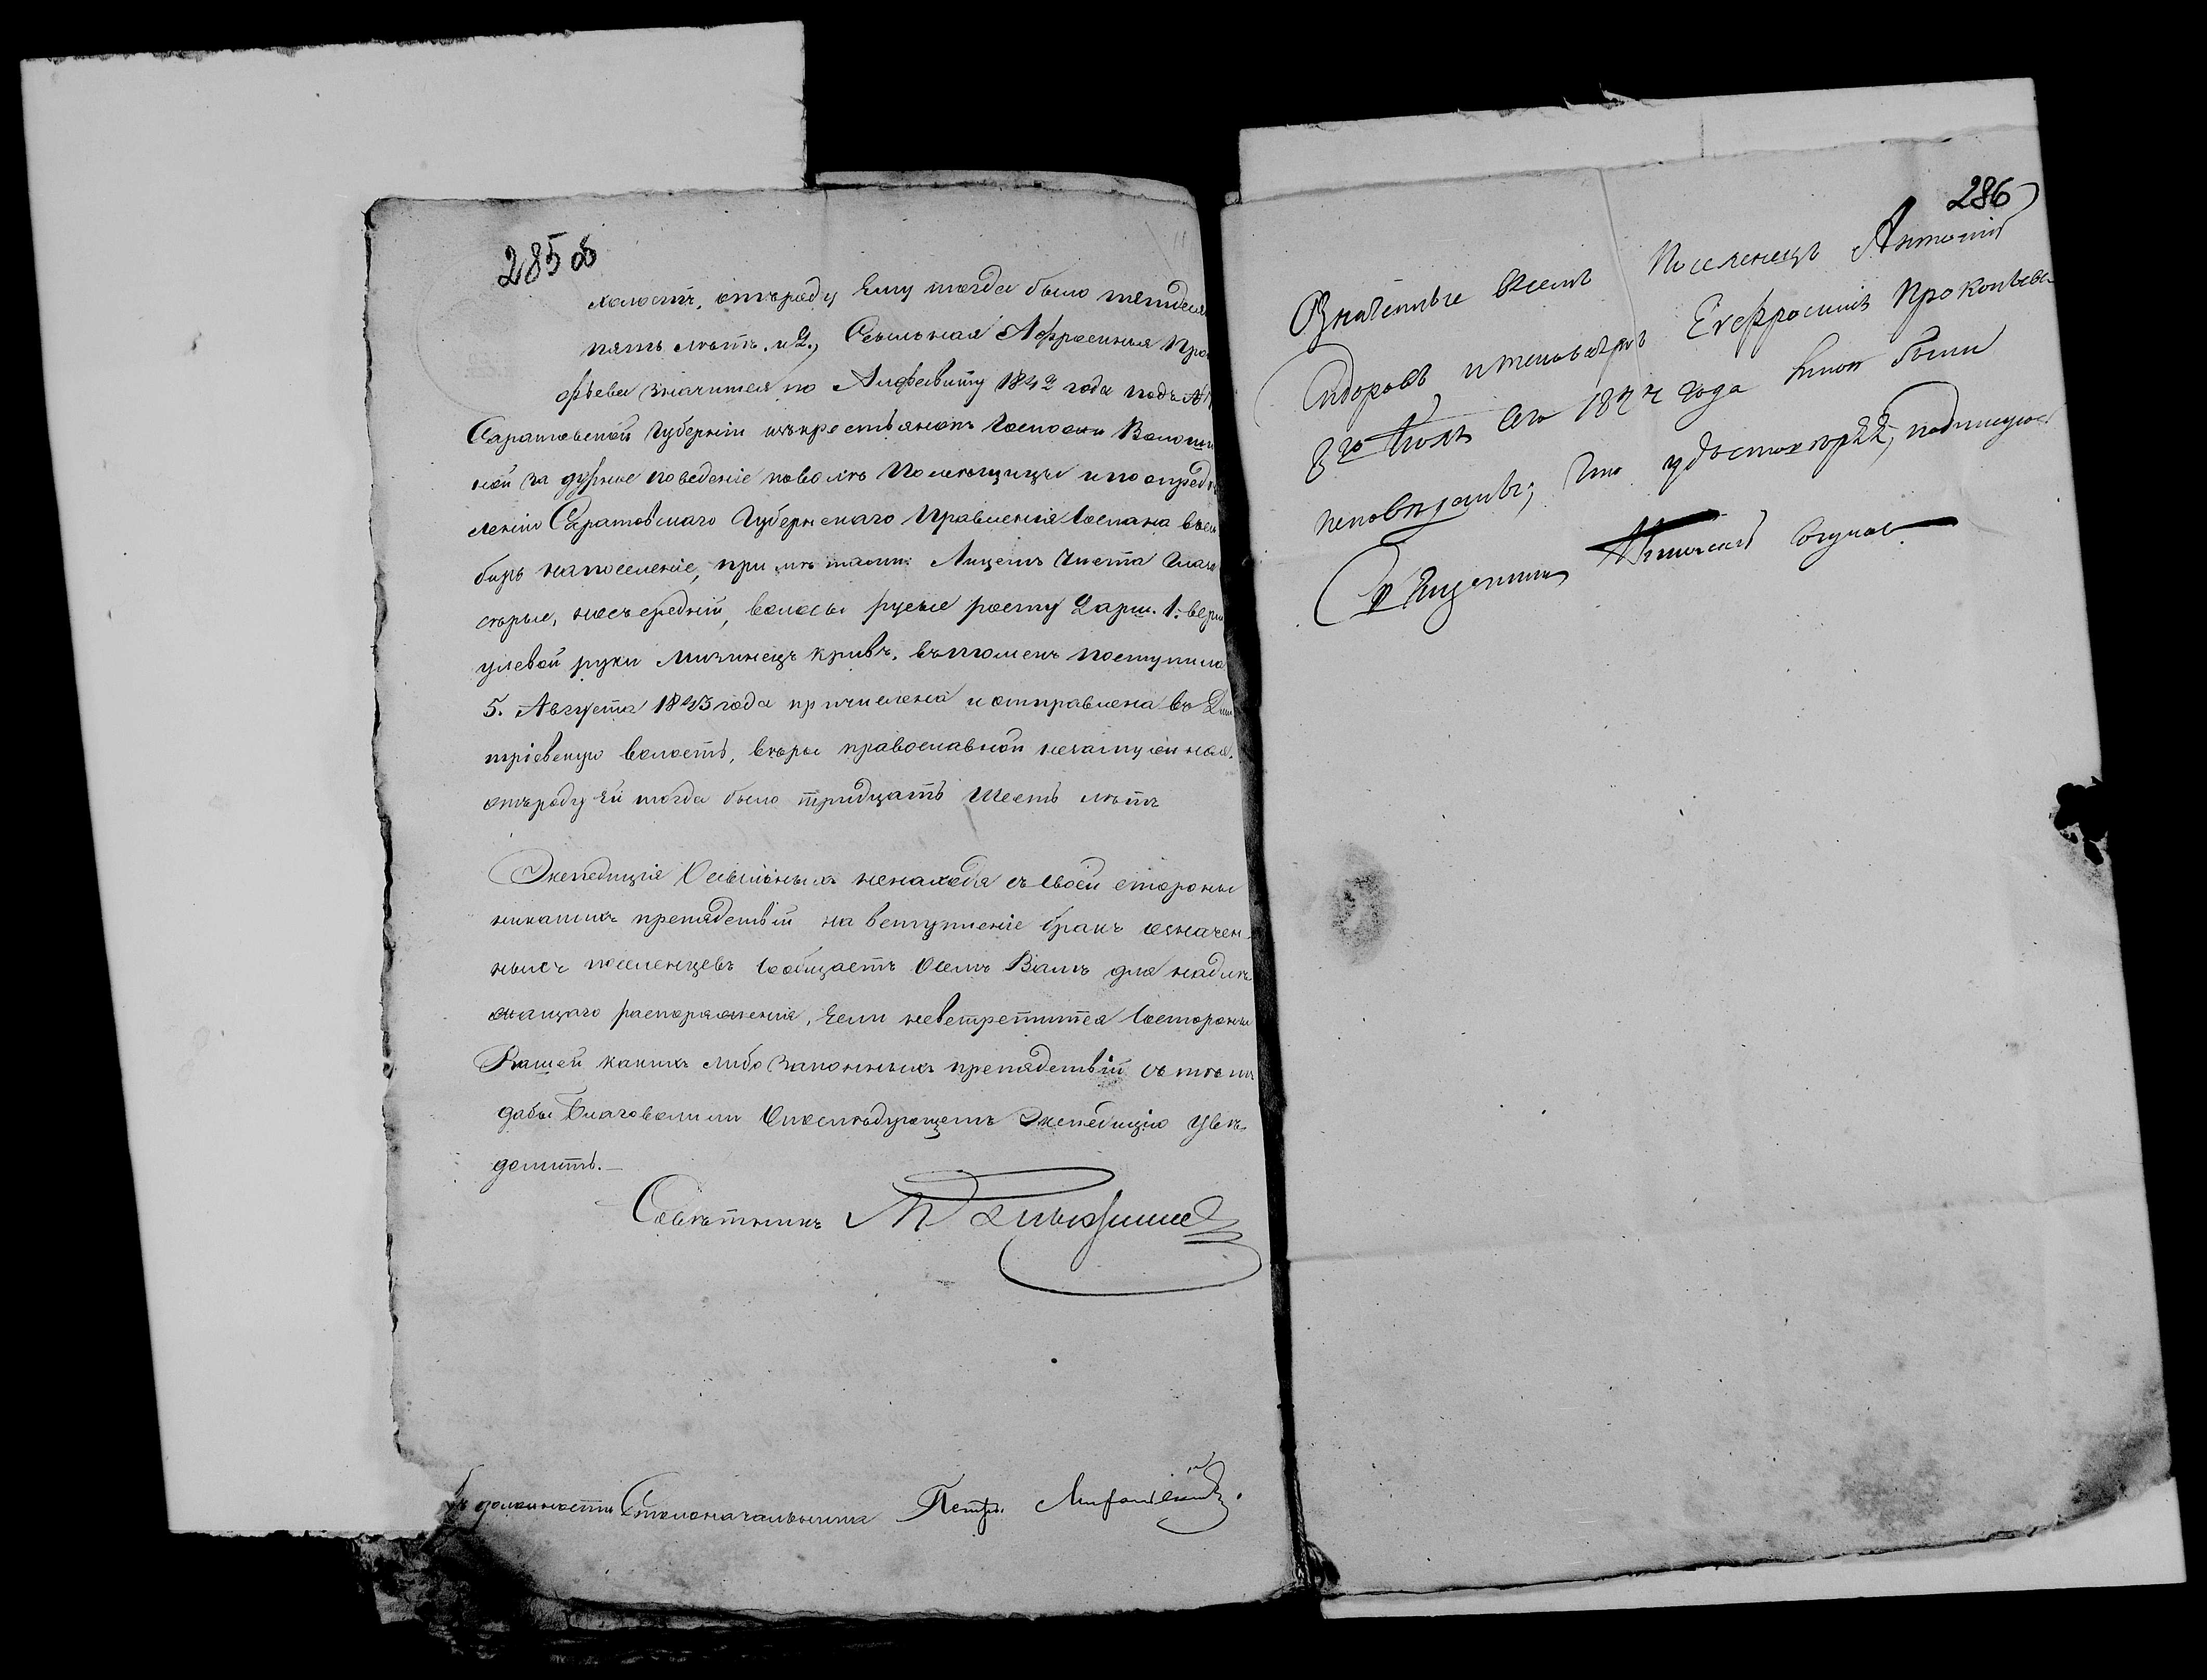 285 об
холостъ, отъроду Ему тогда было пятьдеся
пять лѣтъ. и 2., Ссыльная Афросинья Про
фьева значится по Алфавиту 1842 года подъ №
Саратовской Губерніи изъкрестьянокъ Госпожи
ной за дурное поведеніе поволѣ Помѣщицы и поопредѣ
ленію Саратовскаго Губернскаго Правленія Сослана въСи
бирь напоселеніе, примѣтами: Лицемъ Чиста Глаза
сѣрые, носъ средній, волосы русые росту 2 арш. 1. верш
улевой руки Мизинецъ кривъ. въ поступила
5. Августа 1843 года причислена и отправлена въ Дми
тріевскую волость, вѣры православной
отъроду Ей тогда было тридцать Шесть лѣтъ
Экспедиція Ссыльныхъ ненаходя съ своей стороны
никакихъ препядствій на вступленіе бракъ означен-
ныхъ поселенцевъ Сообщаетъ Осемъ Вамъ для надлѣ
жащаго распоряженія, Если невстретится Состороны
Вашей какихъ либо Законныхъ препядствій съ тѣмъ
дабы Благоволили Опослѣдующемъ Экспедицію Увѣ-
домить.
Совѣтникъ
Въ должности Столоначальника Петръ
286
Означенные всемъ Поселенецъ Антоній
Сидоровъ Евфросинія Прокопьева
Іюля сего 1844 года были
повѣнчаны; что удостовѣряю, подписуюсь
Священникъ